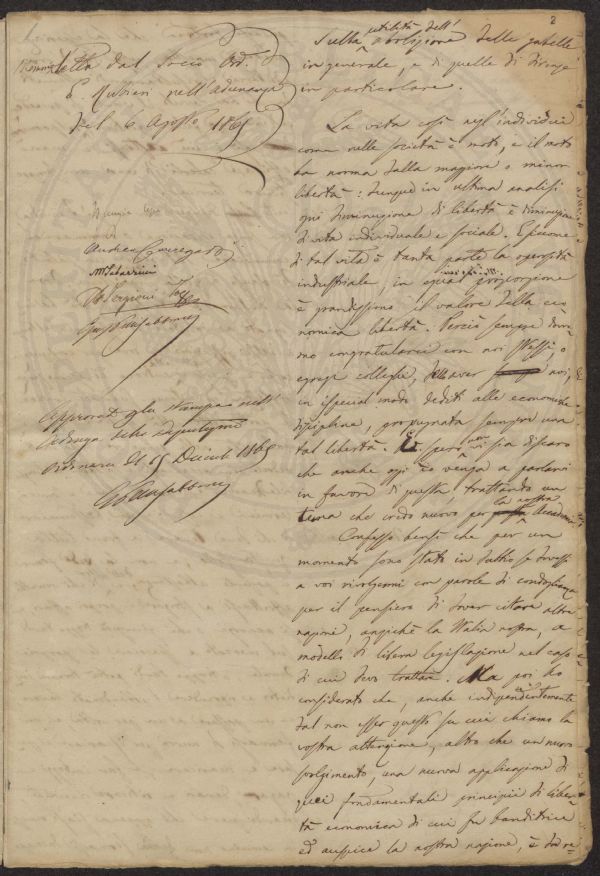 2
Memoria letta dal Socio Ord.
E. Rubieri nell'Adunanza
del 6 Agosto 1865
Andrea
Approvata per la stampa nell'
Adunanza
Ordinaria del 15 Dicembre 1865
Sulla utilità dell'abolizione delle gabelle
in generale, e di quelle di
in particolare.
La vita così negl'individui
come nelle società è moto, e il moto
ha norma dalla maggiore o minor
libertà: dunque in ultima analisi
ogni diminuzione di libertà è diminuzione
di vita individuale e sociale. E siccome
di tal vita è tanta parte la operosità
industriale, in egual proporzione
è grandissimo il valore della eco
nomica libertà. Perciò sempre dovre
mo congratularci con noi stessi, o
egregi colleghi, di aver noi,
in ispecial modo dediti alle economiche
discipline, propugnata sempre una
tal libertà. E spero non vi sia discaro
che anche oggi io venga a parlarvi
in favore di questa, trattando un
tema che credo nuovo per la nostra Accademia.
Confesso bensì che per un
momento sono stato in dubbio se dovessi
a voi rivolgermi con parole di condoglianza
per il pensiero di dover citare altre
nazioni, anzichè la Italia nostra, a
modello di libera legislazione nel caso
di cui devo trattare. Ma poi ho
considerato che, anche indipendentemente
dal non esser questo su cui chiamo la
vostra attenzione, altro che un nuovo
svolgimento, una nuova applicazione di
quei fondamentali principii di liber
tà economica di cui fu banditrice
ed auspice la nostra nazione, è da re=